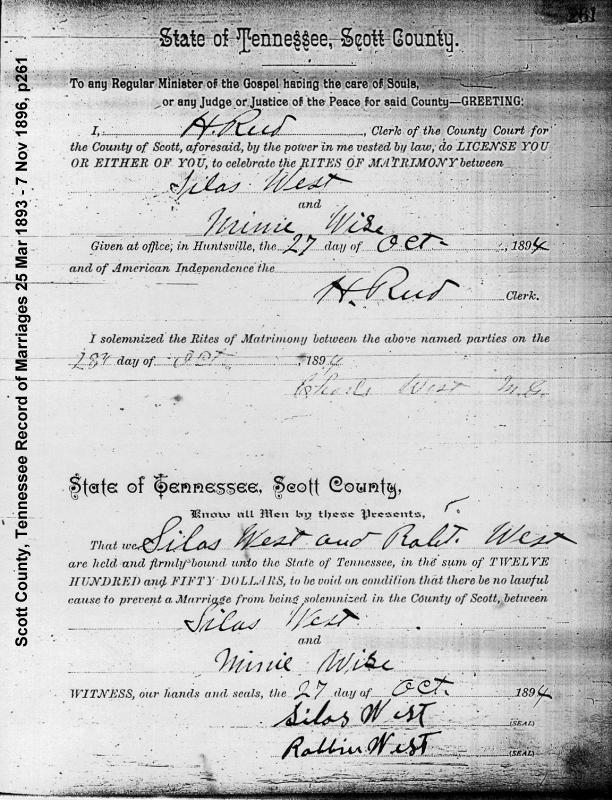 261
State of Tennessee, Scott County.
To any Regular Minister of the Gospel having the care of Souls,
or any Judge or Justice of the Peace for said County—GREETING:
I, H. Reed, Clerk of the County Court for
the County of Scott, aforesaid, by the power in me vested by law, do LICENSE YOU
OR EITHER OF YOU, to celebrate the RITES OF MATRIMONY between
Silas West
and
Minie Wise
Given at office, in Huntsville, the 27 day of Oct. , 1894
and of American Independence the
H. Reed Clerk.
I solemnized the Rites of Matrimony between the above named parties on the
28 day of Oct. , 1894
West M.G.
State of Tennessee, Scott County,
Know all Men by these Presents,
That we Silas West and Robt. West
are held and firmly bound unto the State of Tennessee, in the sum of TWELVE
HUNDRED and FIFTY DOLLARS, to be void on condition that there be no lawful
cause to prevent a Marriage from being solemnized in the County of Scott, between
Silas West
and
Minie Wise
WITNESS, our hands and seals, the 27 day of Oct. 1894
Silas West (SEAL)
Robbin West (SEAL)
Scott County, Tennessee Record of Marriages 25 Mar 1893 - 7 Nov 1896, p261